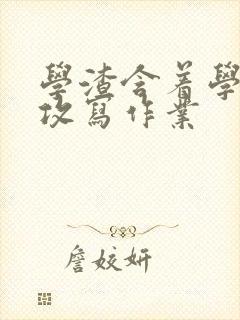 學渣含着學
攻寫作業
詹姣妍